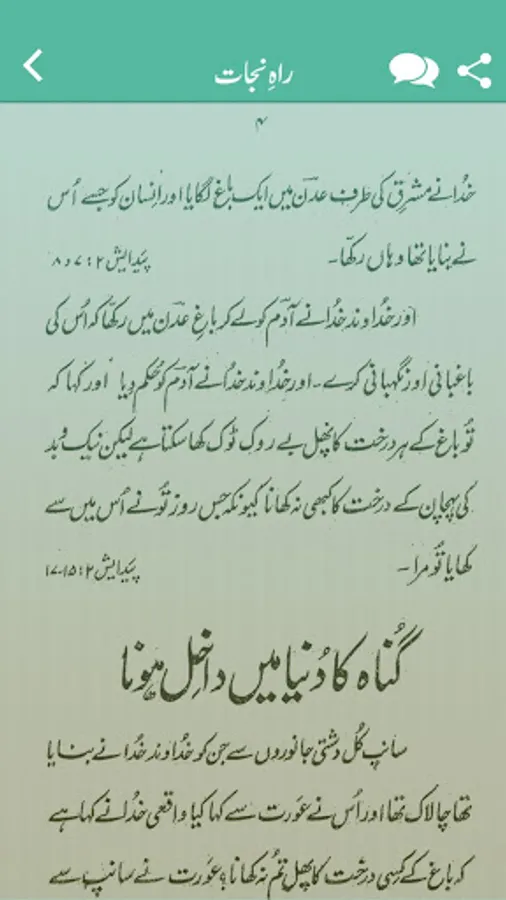 راہِ نجات
۴
خُدا نے مشرق کی طرف عدن میں ایک باغ لگایا اور اِنسان کو جسے اُس
نے بنایا تھا وہاں رکھّا۔ پَیدایش ۲: ۷ و ۸
اور خُداوند خُدا نے آدم کو لے کر باغِ عدن میں رکھّا کہ اُس کی
باغبانی اور نگہبانی کرے۔ اور خُداوند خُدا نے آدم کو حُکم دِیا اور کہا کہ
تُو باغ کے ہر درخت کا پھل بے روک ٹوک کھا سکتا ہے لیکن نیک و بد
کی پہچان کے درخت کا کبھی نہ کھانا کیونکہ جس روز تُو نے اُس میں سے
کھایا تُو مرا۔ پَیدایش ۲: ۱۵-۱۷
گُناہ کا دُنیا میں داخِل ہونا
سانپ کُل دشتی جانوروں سے جن کو خُداوند خُدا نے بنایا
تھا چالاک تھا اور اُس نے عَورت سے کہا کیا واقعی خُدا نے کہا ہے
کہ باغ کے کِسی درخت کا پھل تُم نہ کھانا؟ عَورت نے سانپ سے